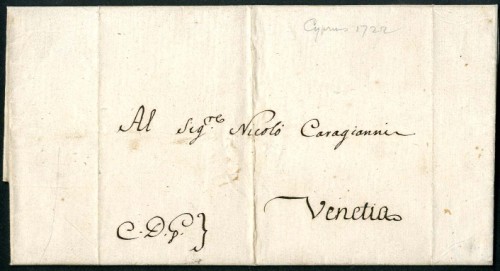 Cyprus 1722
Al Sigre Nicolò Caragianni
Venetia
C. D. G. }